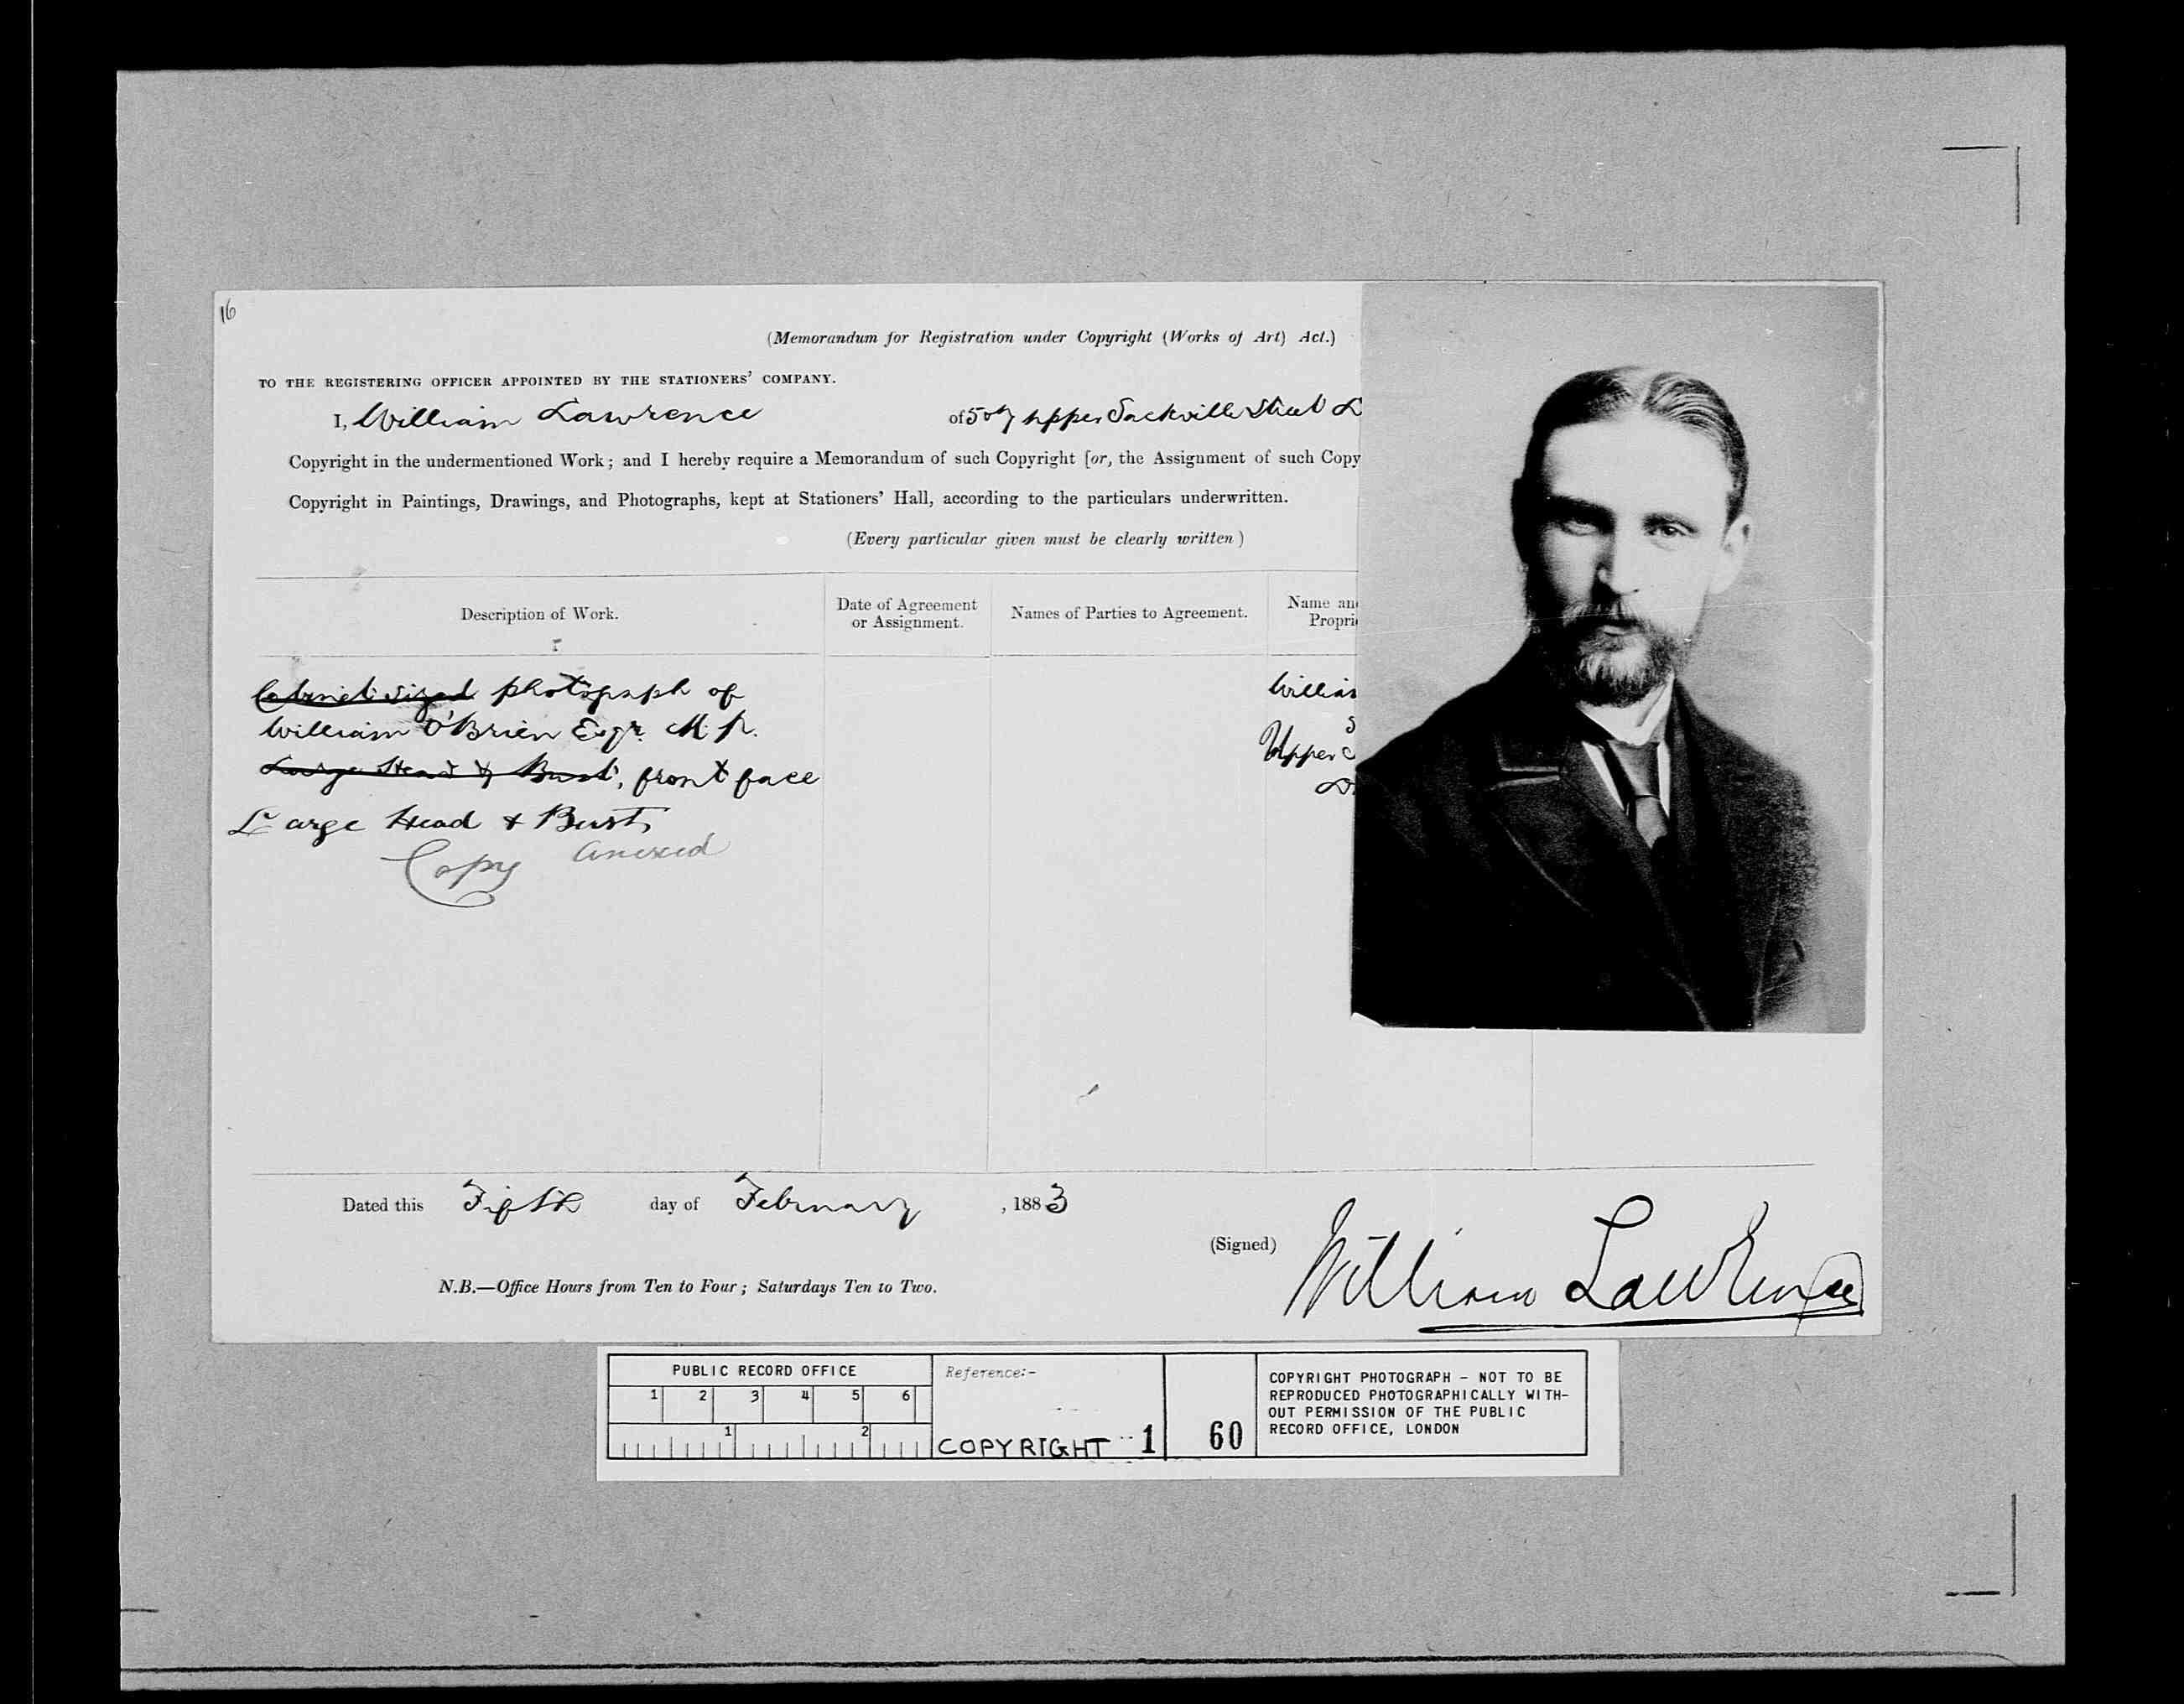 16
(Memorandum for Registration under Copyright (Works of Art) Act.)
TO THE REGISTERING OFFICER APPOINTED BY THE STATIONERS' COMPANY.
I, William Lawrence of 5 & 7 Upper Sackville Street D
Copyright in the undermentioned Work; and I hereby require a Memorandum of such Copyright [or, the Assignment of such Copy
Copyright in Paintings, Drawings, and Photographs, kept at Stationers' Hall, according to the particulars underwritten.
(Every particular given must be clearly written)
Description of Work.
Date of Agreement
or Assignment.
Names of Parties to Agreement.
Name and
Propri
Cabinet sized photograph of
William O'Brien Esqr. M.P.
Large Head & Bust, front face
Large Head & Bust,
Copy anexed
William
5
Upper
D
Dated this Fifth day of February, 1883
(Signed) William Lawrence
N.B.—Office Hours from Ten to Four; Saturdays Ten to Two.
PUBLIC RECORD OFFICE
1 2 3 4 5 6
1 2
Reference:-
COPYRIGHT 1
60
COPYRIGHT PHOTOGRAPH - NOT TO BE
REPRODUCED PHOTOGRAPHICALLY WITH-
OUT PERMISSION OF THE PUBLIC
RECORD OFFICE, LONDON